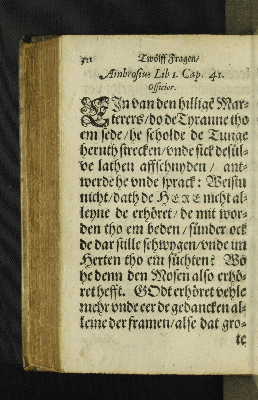 Twölff Fragen/
Ambrosius Lib 1. Cap. 41.
Officior.
EJn van den hilligē Mar-
terers/ do de Tyranne tho
em sede/ he scholde de Tunge
heruth strecken/ vnde sick desül-
ve lathen affschnyden / ant-
werde he vnde sprack: Weistu
nicht/ dath de HERE nicht al-
leyne de erhöret/ de mit wor-
den tho em beden/ sünder ock
de dar stille schwygen/ vnde im
Herten tho em süchten? Wo
he denn den Mosen also erhö-
ret hefft. GOdt erhöret vehle
mehr vnde eer de gedancken al-
leine der framen/ alse dat gro-
te